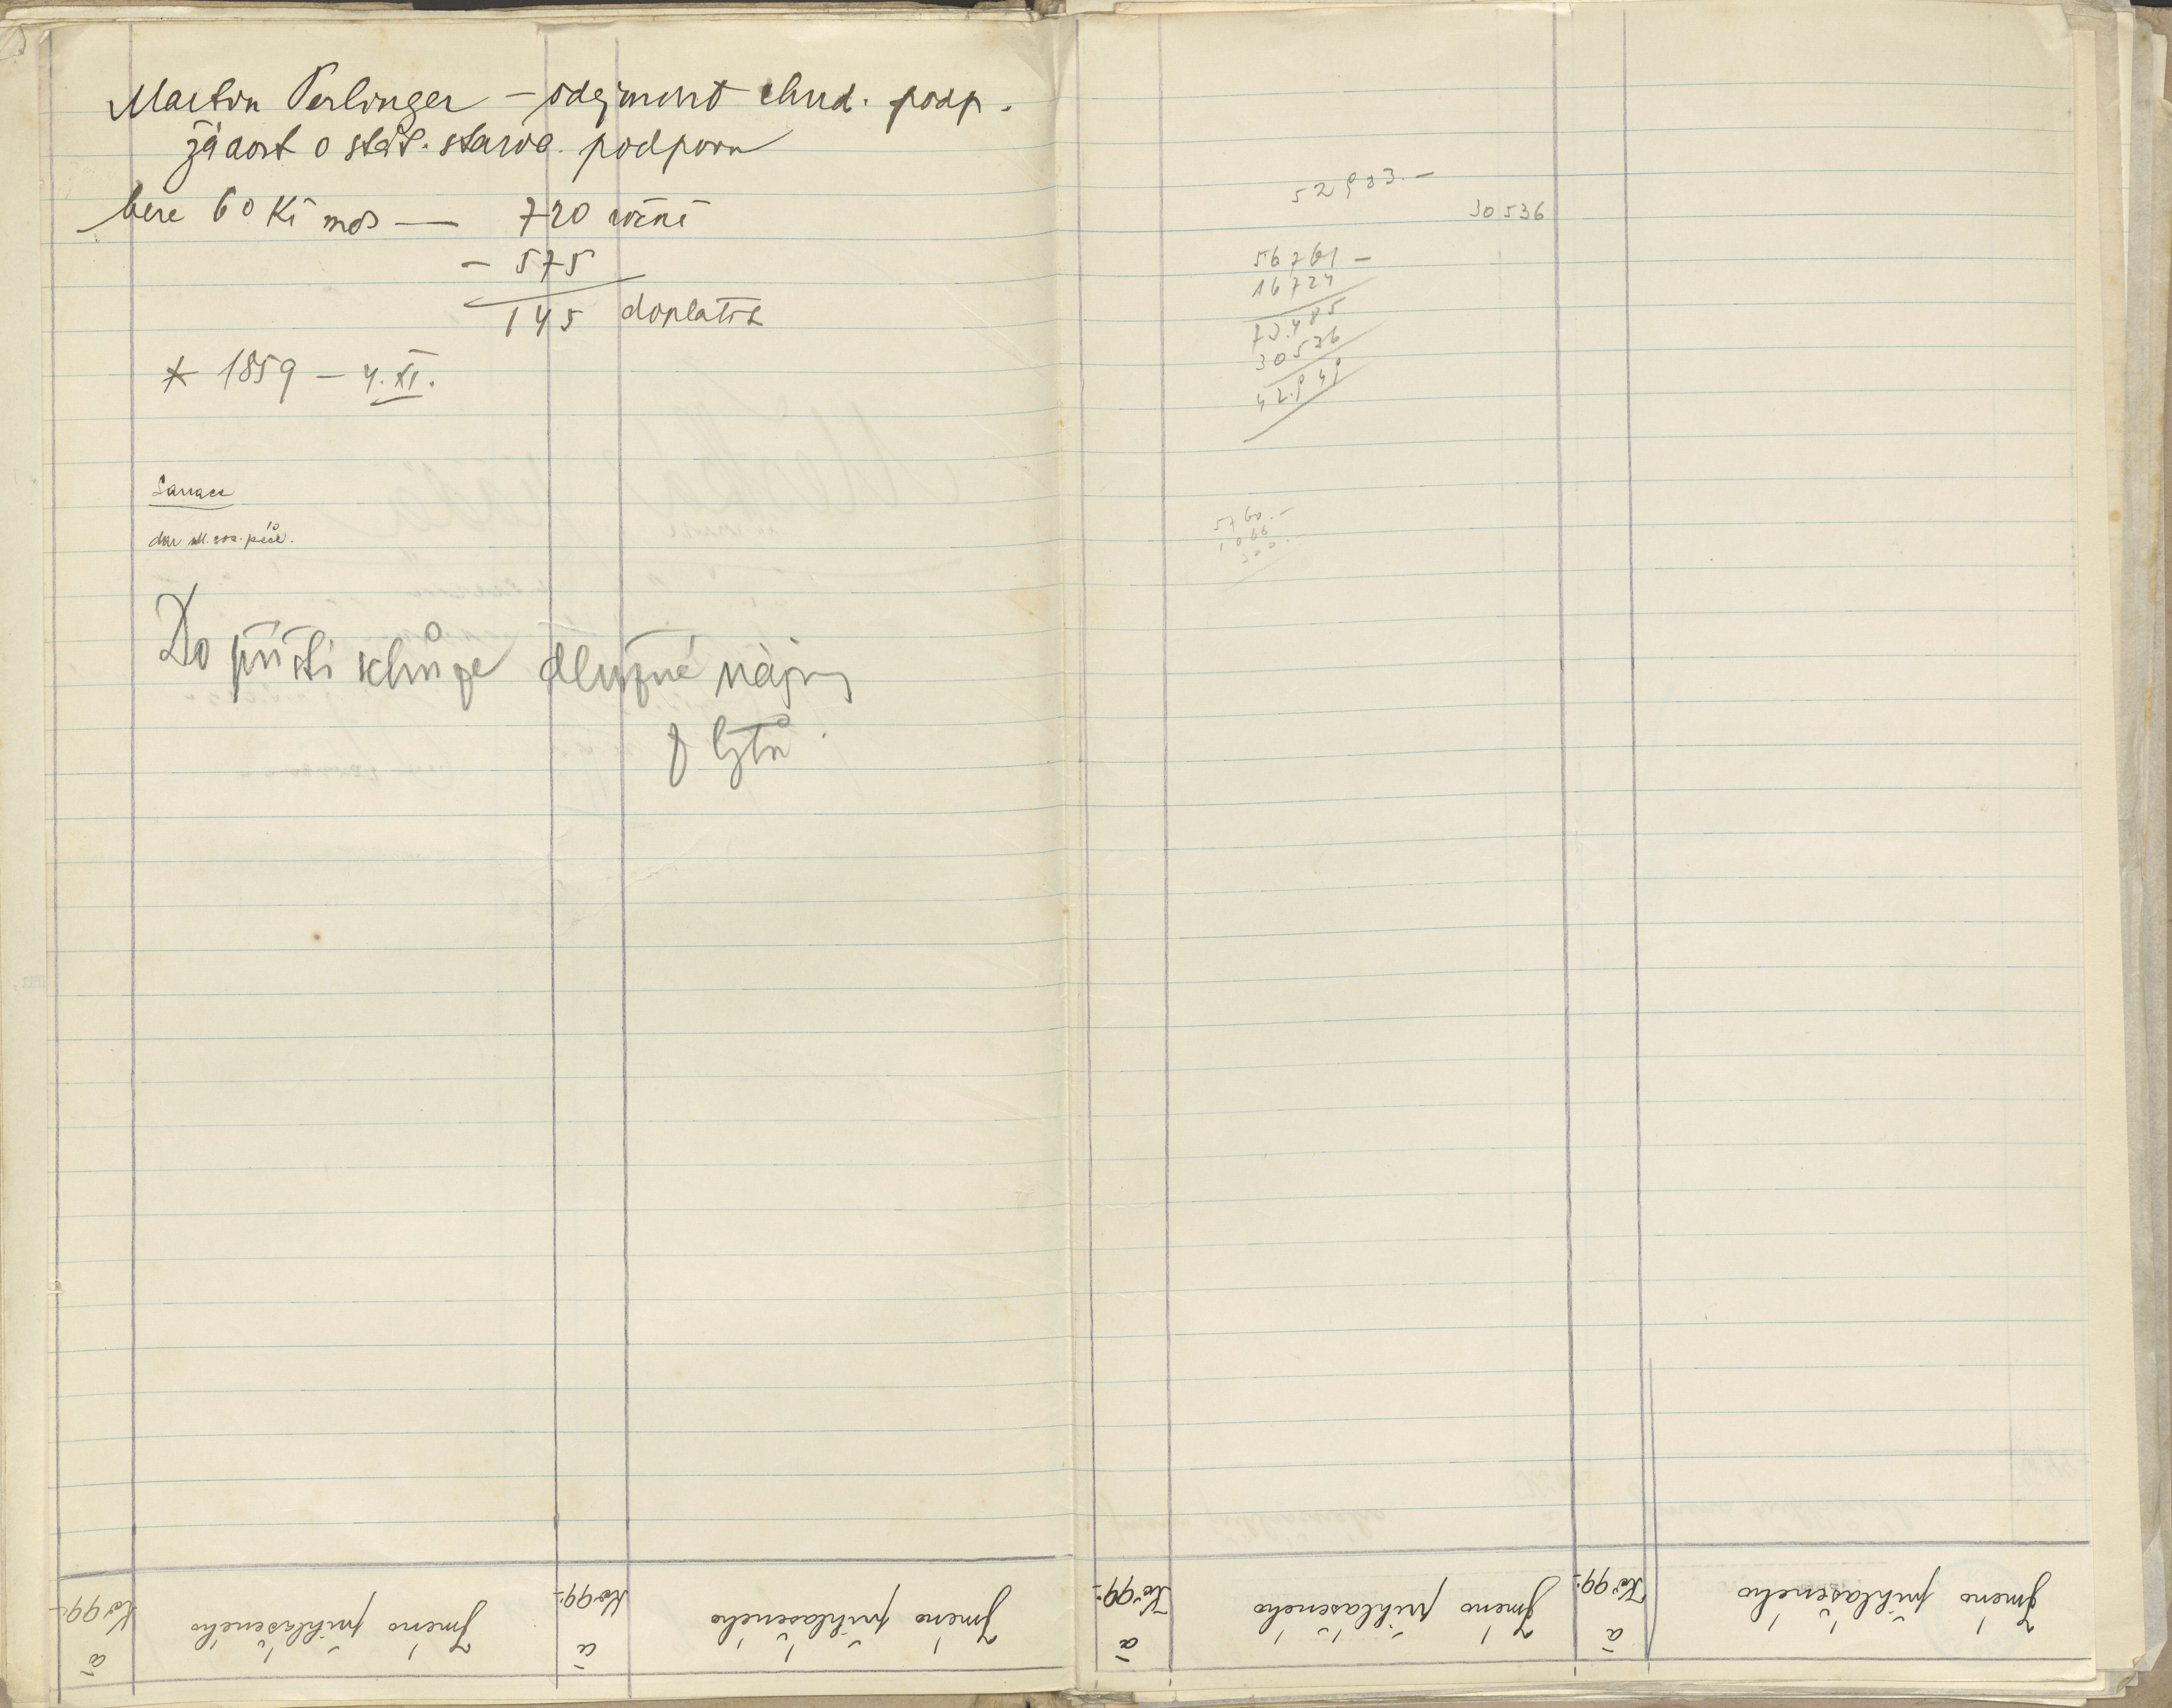 Martin Perlinger – odejmout chud. podp.
žádost o stát. starob. podporu
bere 60 Kč měs — 720 ročně
– 575
145 doplatek
* 1859 – 4. XI.
Sanace
dar M. soc. péče.
Do příští schůze dlužné nájmy
z bytů.
52903.–
30536
56761 –
16724
73.485
30536
42.949
5760.–
1066
300.–
Kč
Jméno přihlášeného
Kč
Jméno přihlášeného
Kč
Jméno přihlášeného
Kč
Jméno přihlášeného